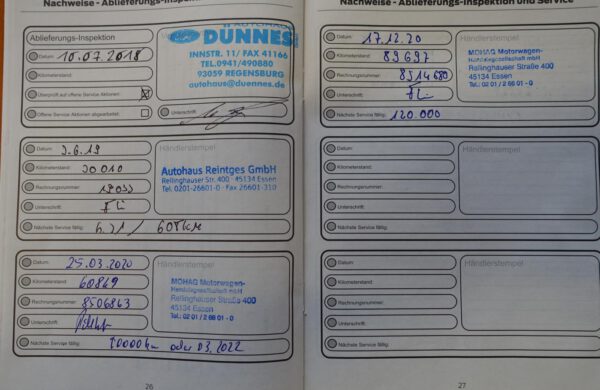 Nachweise - Ablieferungs-Inspektion
Ablieferungs-Inspektion
Datum: 10.07.2018
Kilometerstand:
Überprüft auf offene Service Aktionen:
Offene Service Aktionen abgearbeitet:
AUTOHAUS
DÜNNES
INNSTR. 11/ FAX 41166
TEL.0941/490880
93059 REGENSBURG
autohaus@duennes.de
Unterschrift:
Datum: 3.6.19
Kilometerstand: 30010
Rechnungsnummer:
Unterschrift:
Nächste Service fällig: 6.21 / 60Tkm
Händlerstempel
Autohaus Reintges GmbH
Rellinghauser Str. 400 - 45134 Essen
Tel. 0201-26601-0 - Fax 26601-310
Datum: 25.03.2020
Kilometerstand: 60849
Rechnungsnummer: 8506863
Unterschrift:
Nächste Service fällig: 90000km oder 03.2022
Händlerstempel
MOHAG Motorwagen-
Handelsgesellschaft mbH
Rellinghauser Straße 400
45134 Essen
Tel.: 02 01 / 2 66 01 - 0
26
Nachweise - Ablieferungs-Inspektion und Service
Datum: 17.12.20
Kilometerstand: 89697
Rechnungsnummer: 8514680
Unterschrift:
Nächste Service fällig: 120.000
MOHAG Motorwagen-
Handelsgesellschaft mbH
Rellinghauser Straße 400
45134 Essen
Tel.: 02 01 / 2 66 01 - 0
Datum:
Kilometerstand:
Rechnungsnummer:
Unterschrift:
Nächste Service fällig:
Händlerstempel
Datum:
Kilometerstand:
Rechnungsnummer:
Unterschrift:
Nächste Service fällig:
Händlerstempel
27